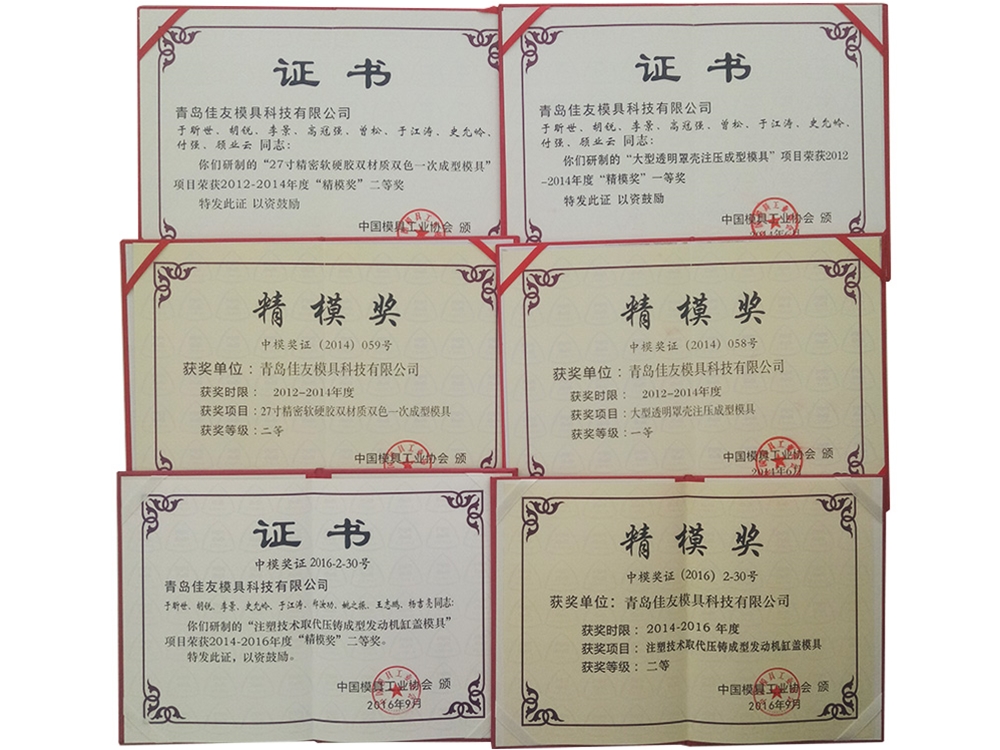 证书
青岛佳友模具科技有限公司
于昕世、胡锐、李景、高冠强、曾松、于江涛、史允岭、
付强、顾业云 同志：
你们研制的“27寸精密软硬胶双材质双色一次成型模具”
项目荣获2012-2014年度“精模奖”二等奖
特发此证 以资鼓励
中国模具工业协会 颁
证书
青岛佳友模具科技有限公司
于昕世、胡锐、李景、高冠强、曾松、于江涛、史允岭、
付强、顾业云 同志：
你们研制的“大型透明罩壳注压成型模具”项目荣获2012
-2014年度“精模奖”一等奖
特发此证 以资鼓励
中国模具工业协会 颁
2014年6月
精模奖
中模奖证（2014）059号
获奖单位：青岛佳友模具科技有限公司
获奖时限： 2012-2014年度
获奖项目：27寸精密软硬胶双材质双色一次成型模具
获奖等级：二等
中国模具工业协会 颁
精模奖
中模奖证（2014）058号
获奖单位：青岛佳友模具科技有限公司
获奖时限： 2012-2014年度
获奖项目：大型透明罩壳注压成型模具
获奖等级：一等
中国模具工业协会 颁
2014年6月
证书
中模奖证 2016-2-30号
青岛佳友模具科技有限公司
于昕世、胡锐、李景、史允岭、于江涛、功、姚之振、王志鹏、杨吉亮同志：
你们研制的“注塑技术取代压铸成型发动机缸盖模具”
项目荣获2014-2016年度“精模奖”二等奖。
特发此证，以资鼓励。
中国模具工业协会 颁
2016年9月
精模奖
中模奖证（2016）2-30号
获奖单位：青岛佳友模具科技有限公司
获奖时限：2014-2016 年度
获奖项目：注塑技术取代压铸成型发动机缸盖模具
获奖等级：二等
中国模具工业协会 颁
2016年9月